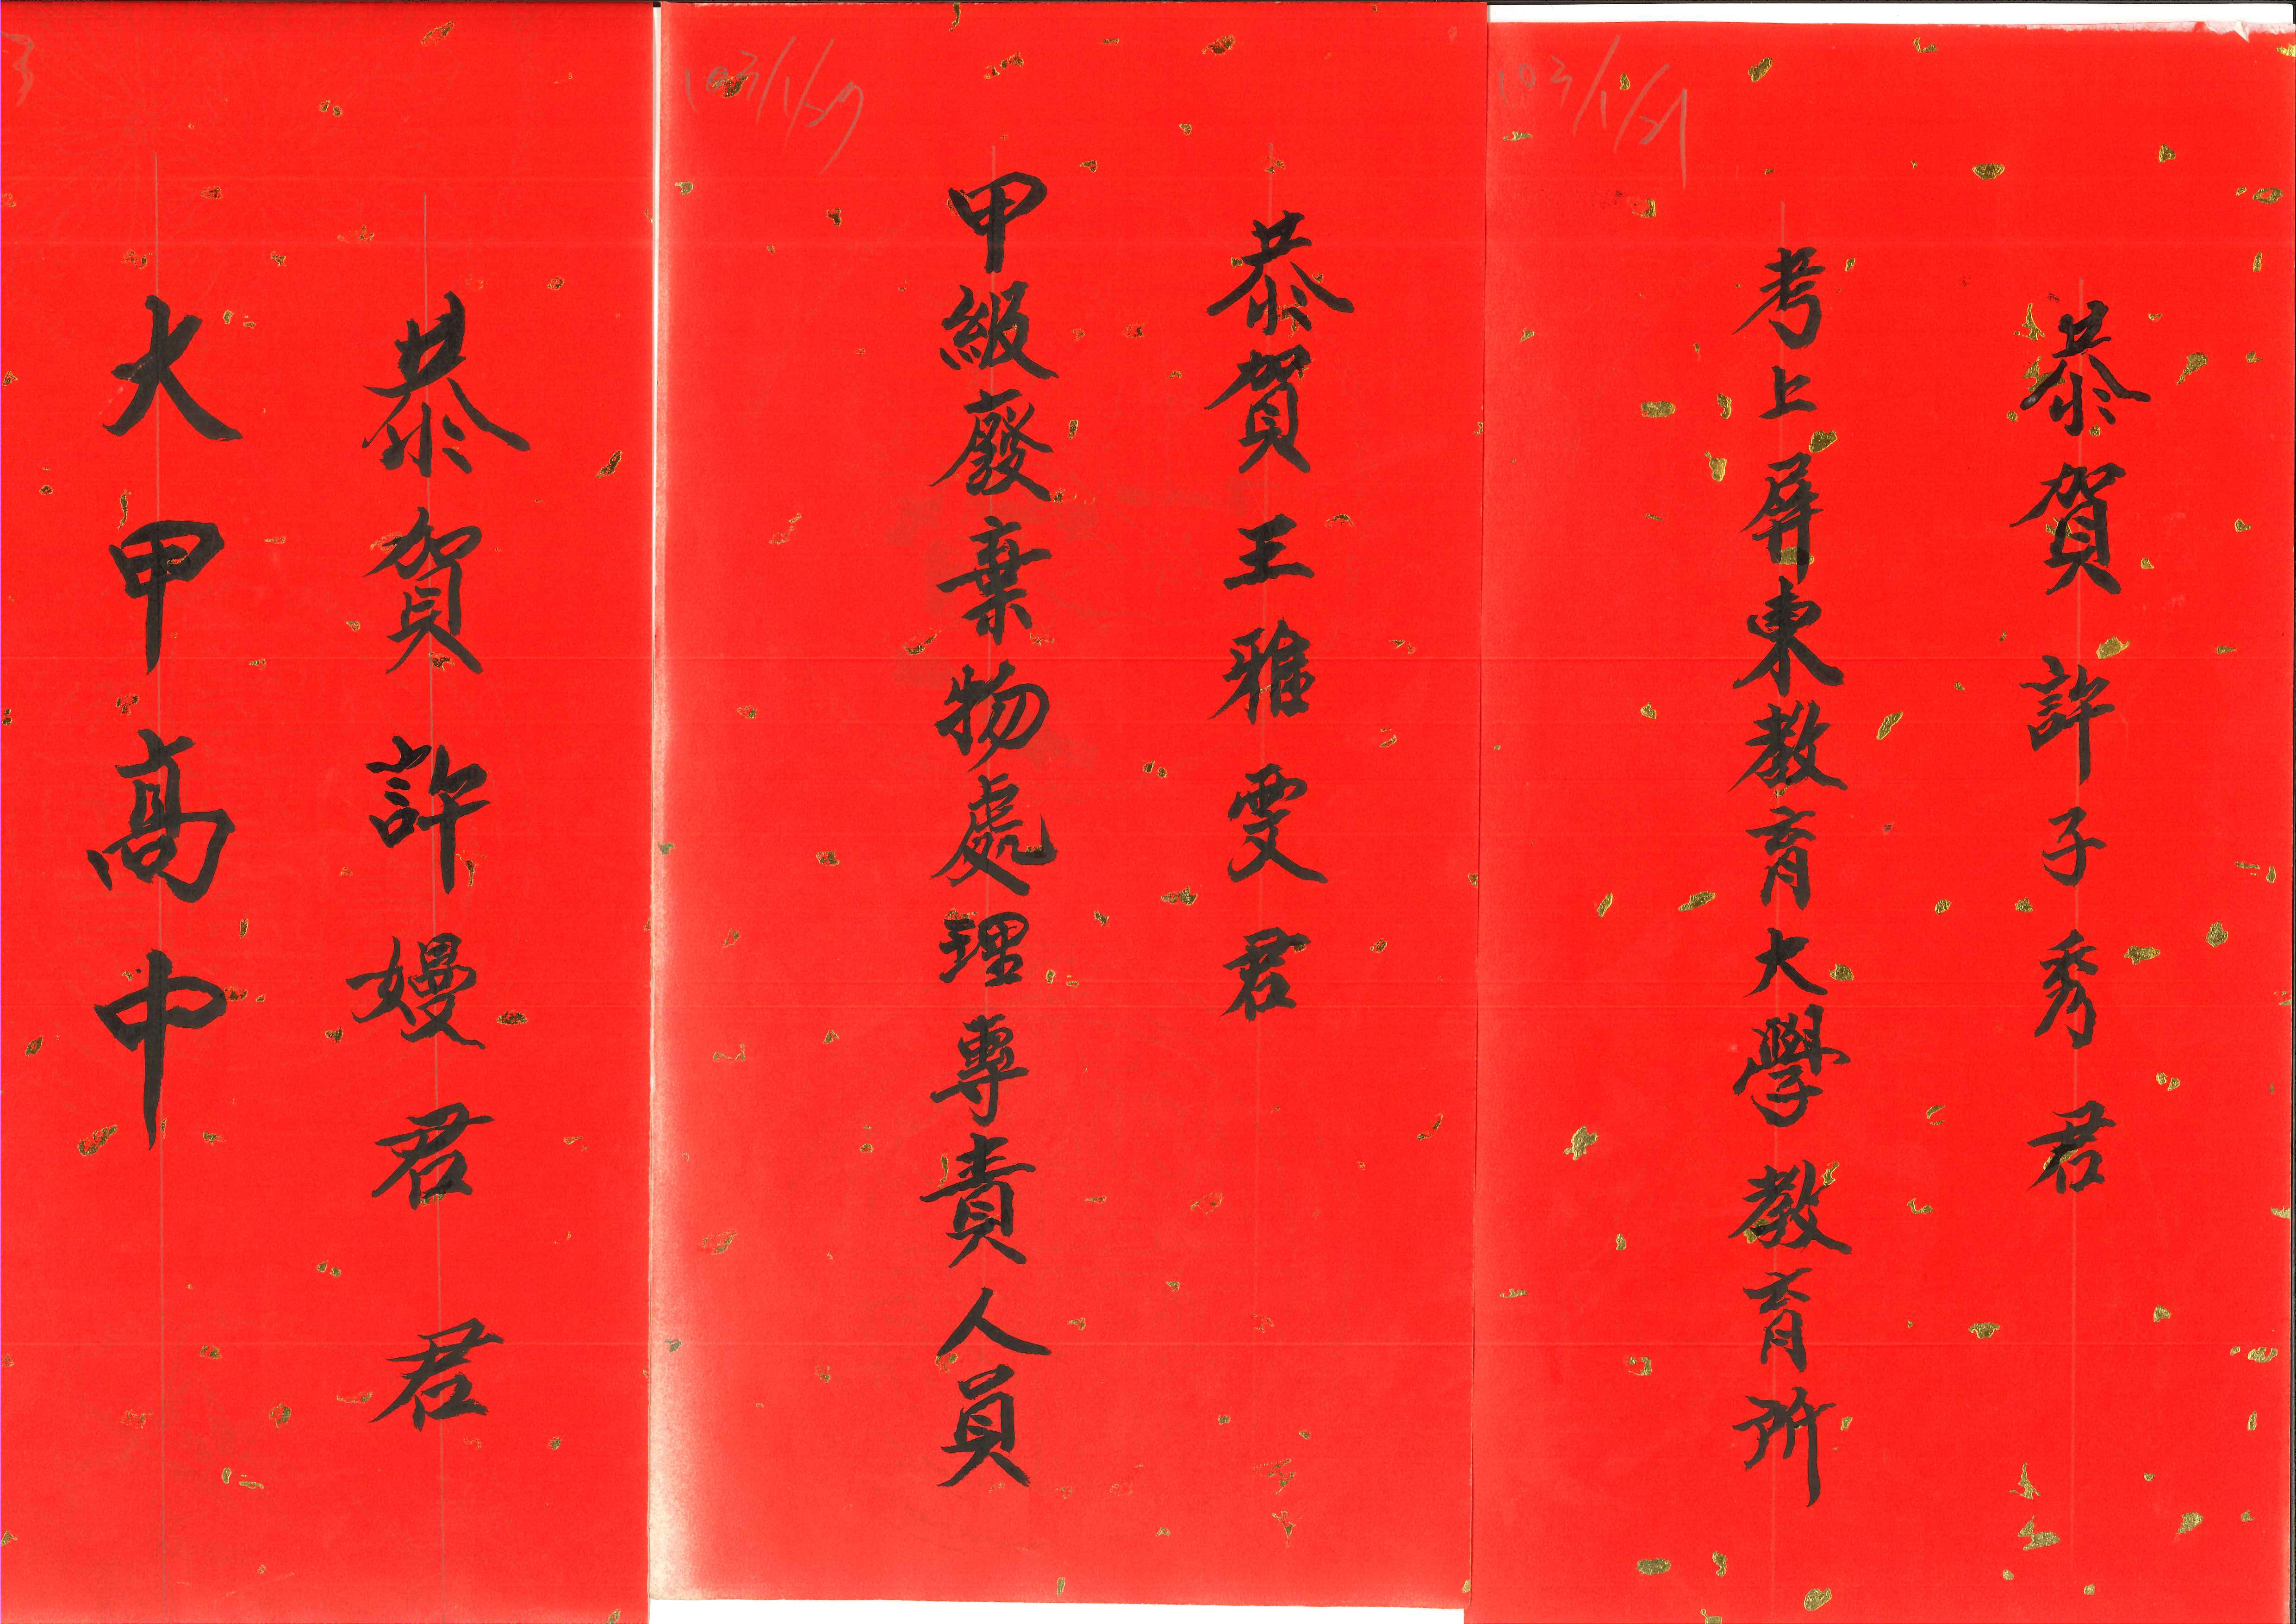 103/1/21
恭賀 許子秀 君
考上屏東教育大學教育所
恭賀王雅雯君
甲級廢棄物處理專責人員
恭賀許嫚君 君
大甲高中